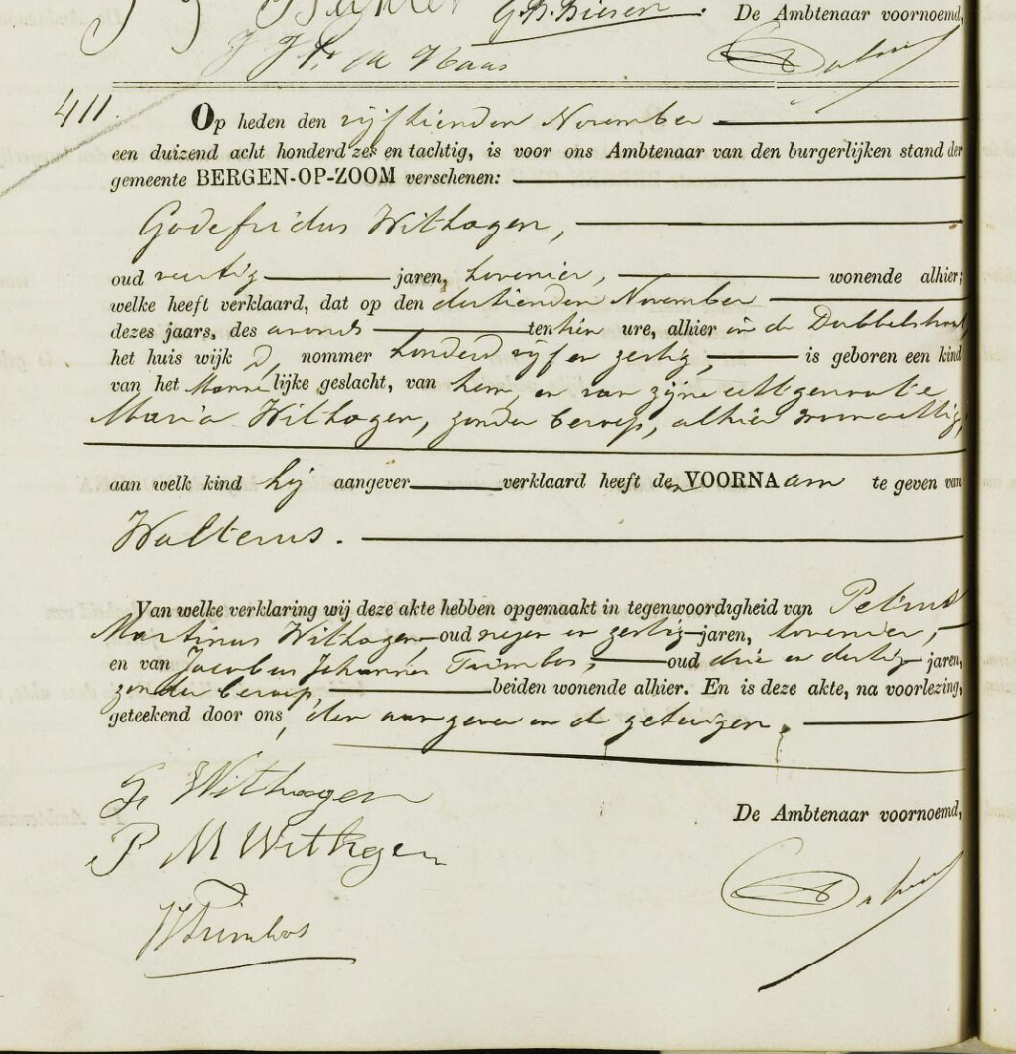 G. B. Biesen. De Ambtenaar voornoemd,
J J de Haas
411.
Op heden den vijftienden November
een duizend acht honderd zes en tachtig, is voor ons Ambtenaar van den burgerlijken stand der
gemeente BERGEN-OP-ZOOM verschenen:
Godefridus Withagen,
oud veertig jaren, hovenier, wonende alhier;
welke heeft verklaard, dat op den dertienden November
dezes jaars, des avonds ten tien ure, alhier in de Dubbelstraat
het huis wijk D, nommer honderd vijf en zestig, is geboren een kind
van het Mannelijke geslacht, van hem, en van zijne echtgenoote
Maria Withagen, zonder beroep, alhier woonachtig,
aan welk kind hij aangever verklaard heeft den VOORNAam te geven van
Walterus.
Van welke verklaring wij deze akte hebben opgemaakt in tegenwoordigheid van Petrus
Martinus Withagen oud negen en zestig jaren, hovenier,
en van Jacobus Johannes Trimbos, oud drie en dertig jaren,
zonder beroep, beiden wonende alhier. En is deze akte, na voorlezing,
geteekend door ons, den aangever en de getuigen.
G Withagen
P M Withagen
De Ambtenaar voornoemd,
Trimbos